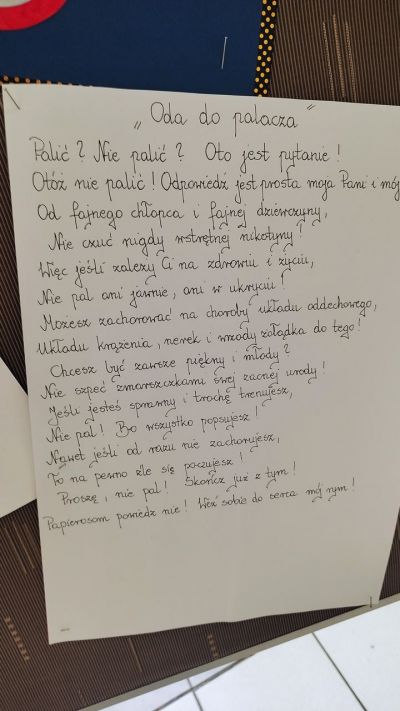 „Oda do palacza”
Palić? Nie palić? Oto jest pytanie!
Otóż nie palić! Odpowiedź jest prosta moja Pani i mój
Od fajnego chłopca i fajnej dziewczyny,
Nie czuć nigdy wstrętnej nikotyny!
Więc jeśli zależy Ci na zdrowiu i życiu,
Nie pal ani jawnie, ani w ukryciu!
Możesz zachorować na choroby układu oddechowego,
Układu krążenia, nerek i wrzody żołądka do tego!
Chcesz być zawsze piękny i młody?
Nie szpeć zmarszczkami swej zacnej urody!
Jeśli jesteś sprawny i trochę trenujesz,
Nie pal! Bo wszystko popsujesz!
Nawet jeśli od razu nie zachorujesz,
To na pewno źle się poczujesz!
Proszę, nie pal! Skończ już z tym!
Papierosom powiedz nie! Weź sobie do serca mój rym!